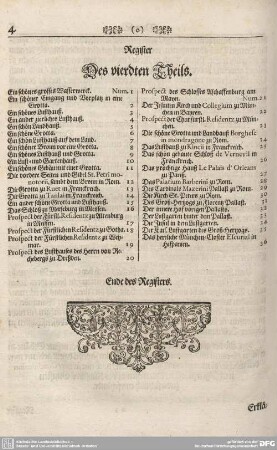 4 (o)
Register
Des vierdten Theils.
Ein schönes grosses Wasserwerck. Num. 1
Ein schöner Eingang und Vorplatz in eine
Grotta. 2
Ein schönes Lusthauß. 3
Ein ander zierliches Lusthauß. 4
Ein schön Landhauß. 5
Ein schöne Grotta. 6
Ein schön Lusthauß auf dem Land. 7
Ein schöner Brunn vor eine Grotta. 8
Ein schönes Lusthauß und Grotta. 9
Ein Lust- und Gartenhauß. 10
Ein schönes Gebäu mit einer Grotta. 11
Die vordere Seiten und Gibel St. Petri mo-
notorii, sambt dem Bronn in Rom. 12
Die Grotta zu Ruel in Franckreich. 13
Die Grotta zu Tanlai in Franckreich. 14
Ein ander schön Grotta und Lusthauß. 15
Das Schloß zu Morseburg in Meissen. 16
Prospect der Fürstl. Residentz zu Altenburg
in Meissen. 17
Prospect der Fürstlichen Residentz zu Gotha. 18
Prospect der Fürstlichen Residentz zu Wey-
mar. 19
Prospect des Lusthauses des Herrn von
zu Dreßden. 20
Prospect des Schlosses Aschaffenburg am
Mayn. Num. 21
Der Jesuiter Kirch und Collegium zu Mün-
chen in Bayern. 22
Prospect der Churfürstl. Residentz zu Mün-
chen. 23
Die schöne Grotta und Landhauß Borghese
in
Das Lusthauß zu Rinci in Franckreich.
Das schön gebaute Schloß de Vernevil in
Franckreich.
Das prächtige Hauß Le Palais d'Orleans
zu Pariß.
Das Palatium Barberini zu Rom.
Des Cardinals Mazarini Pallast zu Rom.
Die Kirch St. Peter zu Rom.
Des Groß-Hertzogs zu Florentz Pallast.
Der innere Hof vorigen Pallasts.
Der Lustgarten hinter dem Pallast.
Die Insel in dem Lustgarten.
Der Lustgarten des Groß-Hertzogs.
Das herrliche München-Closter Escurial in
Hispanien.
Ende des Registers.
Erklä-